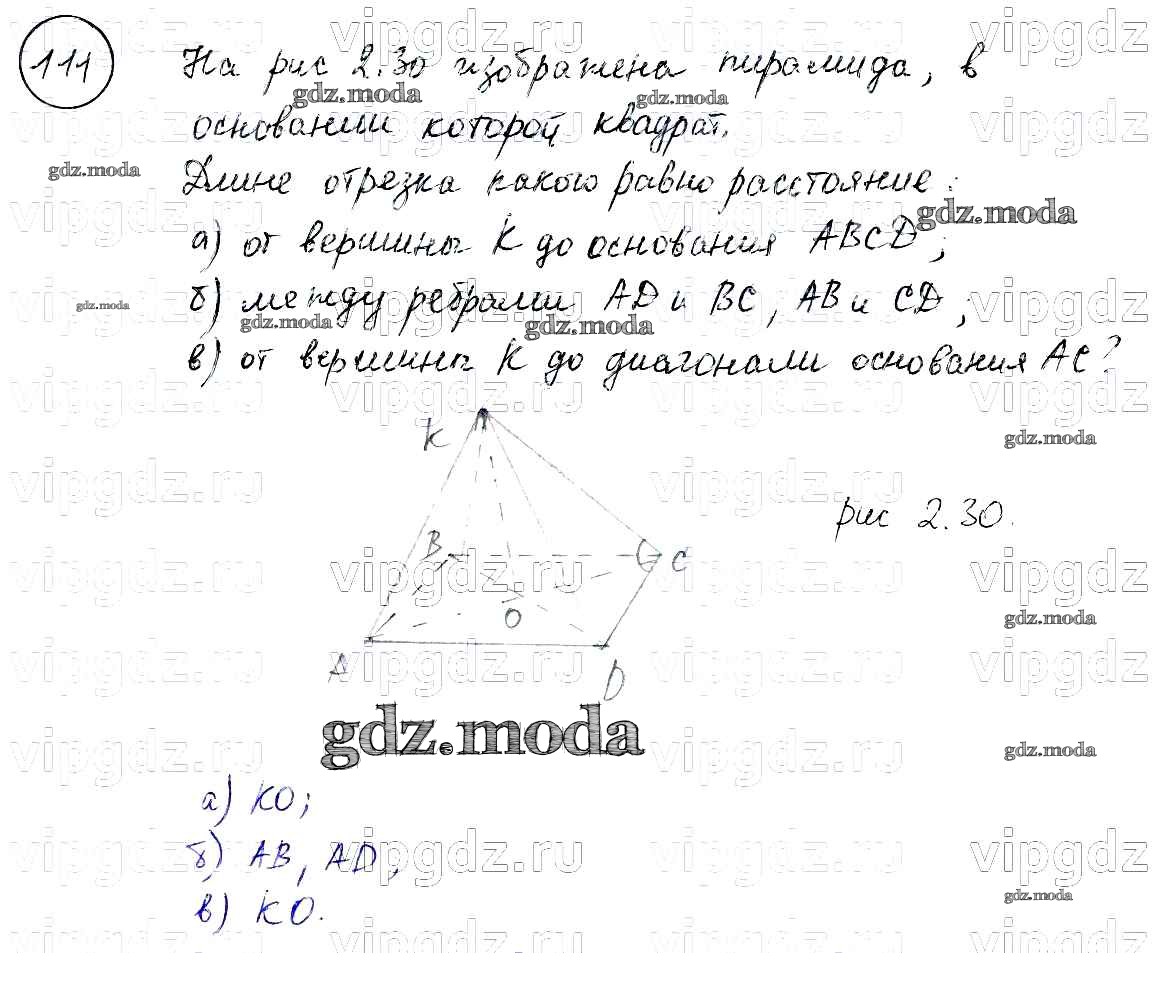 111
На рис 2.30 изображена пирамида, в
основании которой квадрат.
Длине отрезка какого равно расстояние:
а) от вершины К до основания ABCD;
б) между ребрами AD и BC, AB и CD;
в) от вершины К до диагонали основания AC?
K
B
C
O
A
D
рис 2.30.
а) KO;
б) AB, AD,
в) KO.
gdz.moda
vipgdz.ru